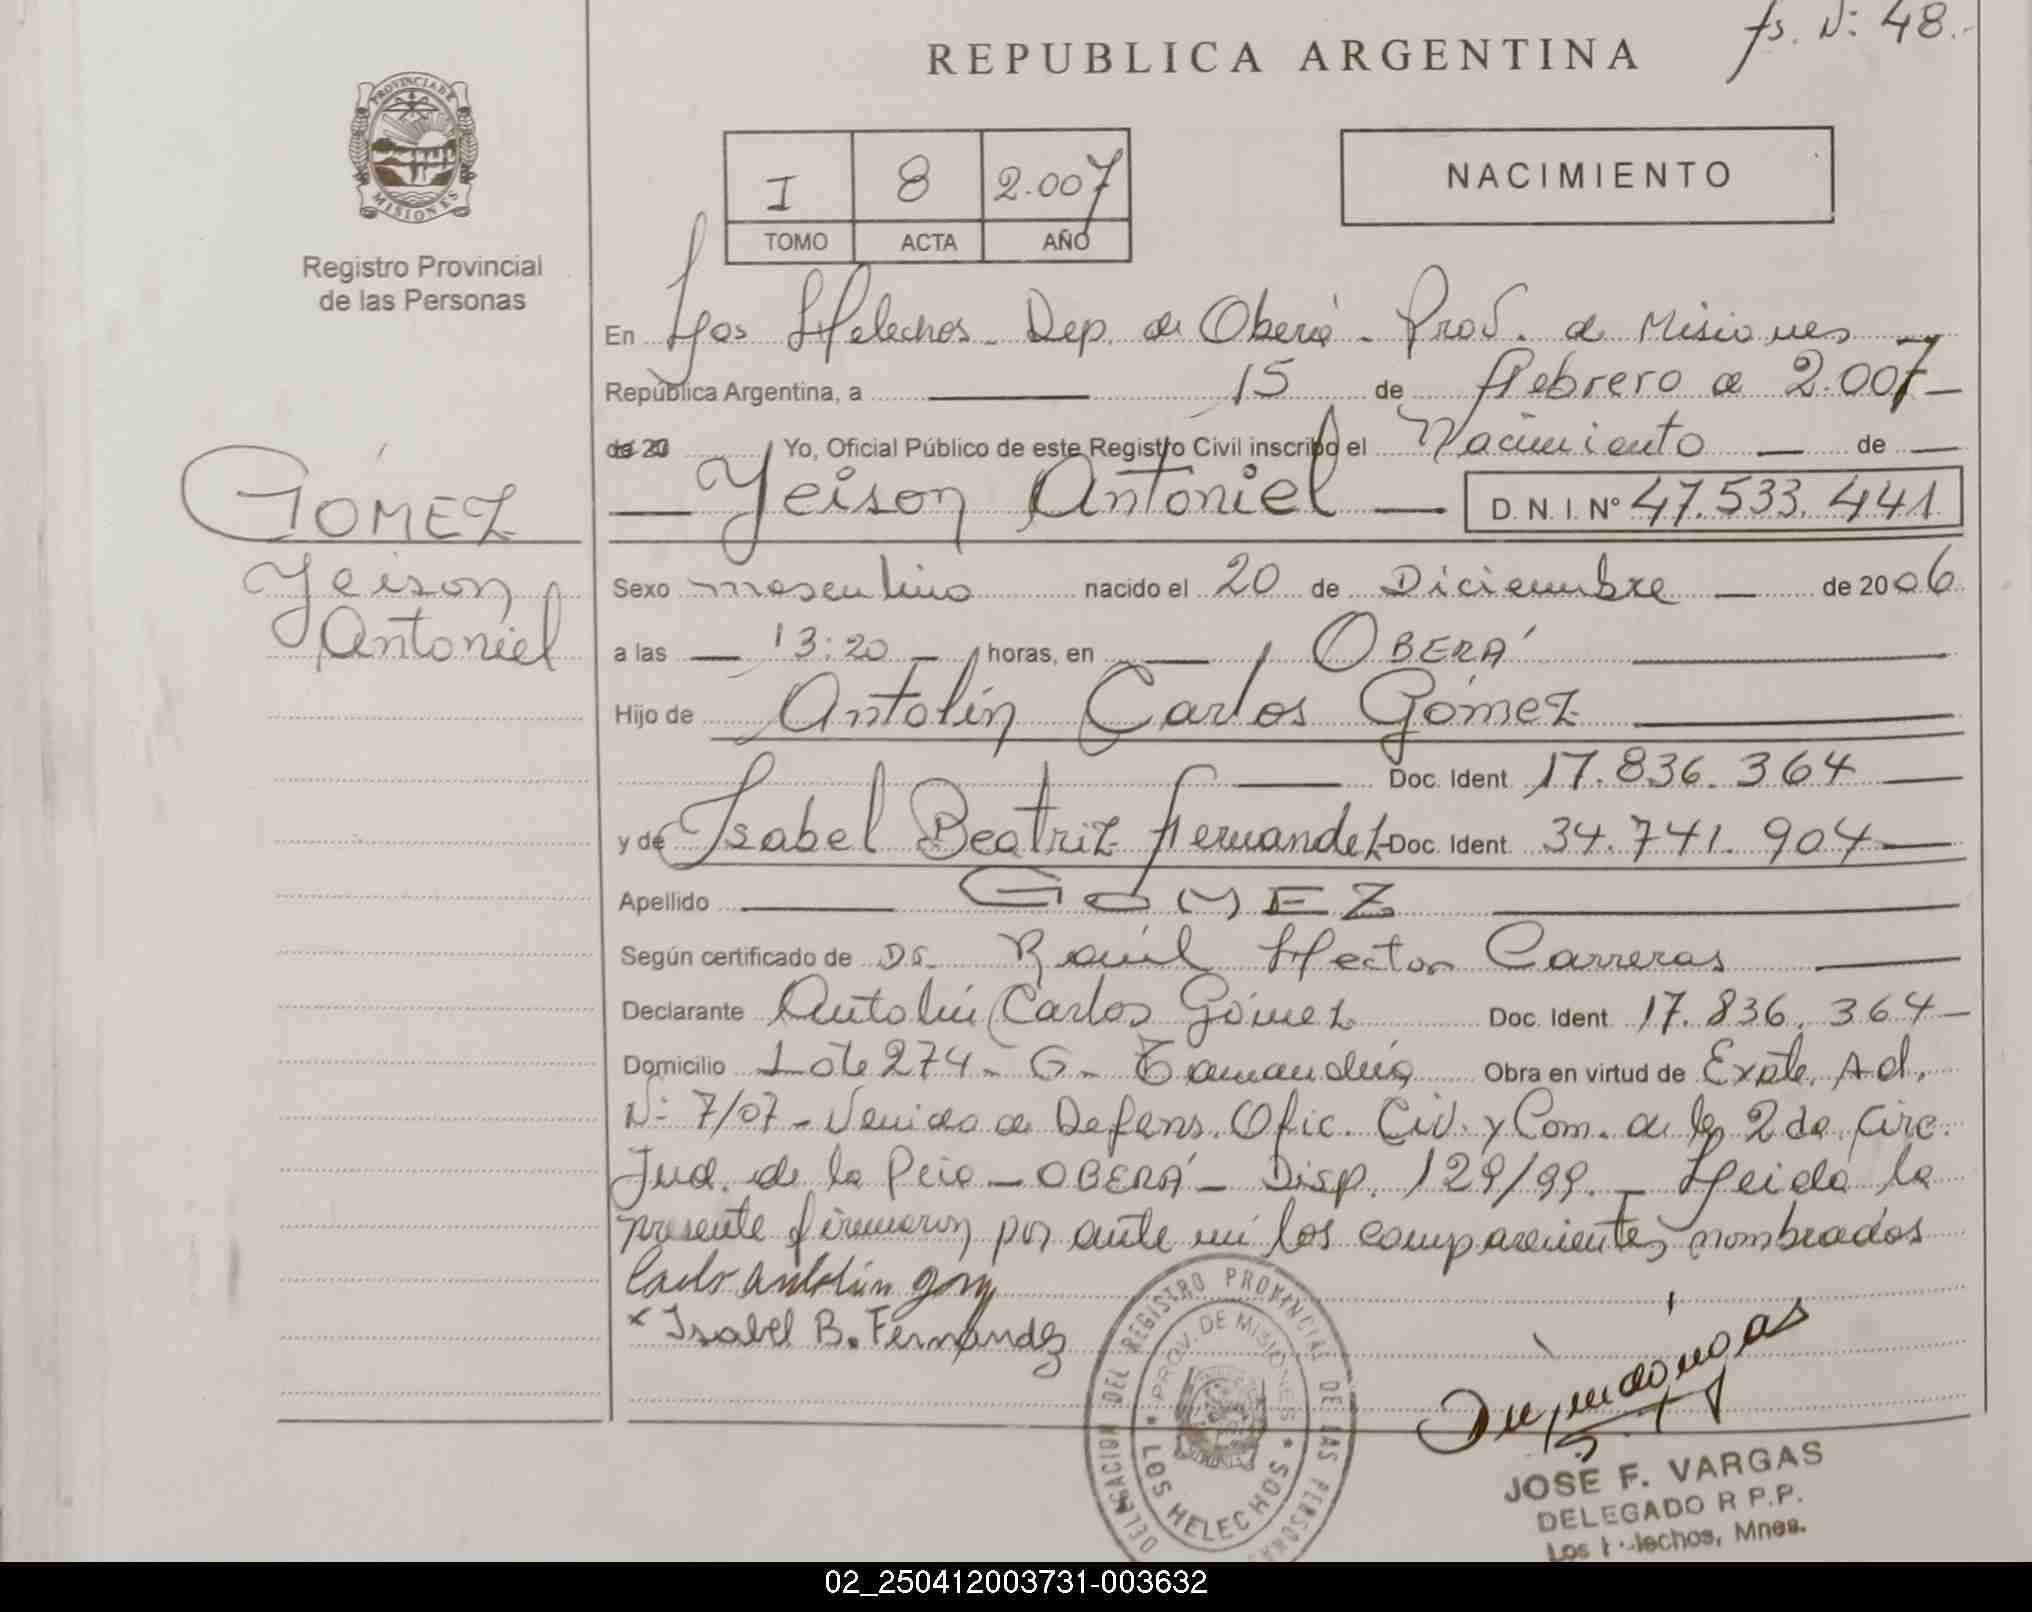 fs. N: 48.-
REPUBLICA ARGENTINA
PROVINCIA DE
MISIONES
Registro Provincial
de las Personas
I 8 2.007
TOMO ACTA AÑO
NACIMIENTO
En Los Helechos - Dep. de Oberá - Prov. de Misiones
República Argentina, a 15 de Febrero de 2.007-
de 20 Yo, Oficial Público de este Registro Civil inscribo el Nacimiento de
Yeison Antoniel D. N. I. Nº 47.533.441
GÓMEZ
Yeison
Antoniel
Sexo masculino nacido el 20 de Diciembre de 2006
a las 13:20 horas, en OBERÁ
Hijo de Antolín Carlos Gómez
Doc. Ident 17.836.364
y de Isabel Beatriz Fernandez Doc. Ident 34.741.904
Apellido GOMEZ
Según certificado de Dr. Raúl Hector Carreras
Declarante Antolín Carlos Gómez Doc. Ident 17.836.364
Domicilio Lote 274 - G - Tamanduá Obra en virtud de Expte. Ad.
N: 7/07 - Venida de Defens. Ofic. Civ. y Com. de la 2da. Circ.
Jud. de la Pcia - OBERÁ - Disp. 129/99. - Leida la
presente firmaron por ante mi los comparecientes nombrados
Carlo Antolin
x Isabel B. Fernandez
DELEGACION DEL REGISTRO PROVINCIAL DE LAS PERSONAS
PROV. DE MISIONES
* LOS HELECHOS *
JOSE F. VARGAS
DELEGADO R P.P.
Los Helechos, Mnes.
02_250412003731-003632